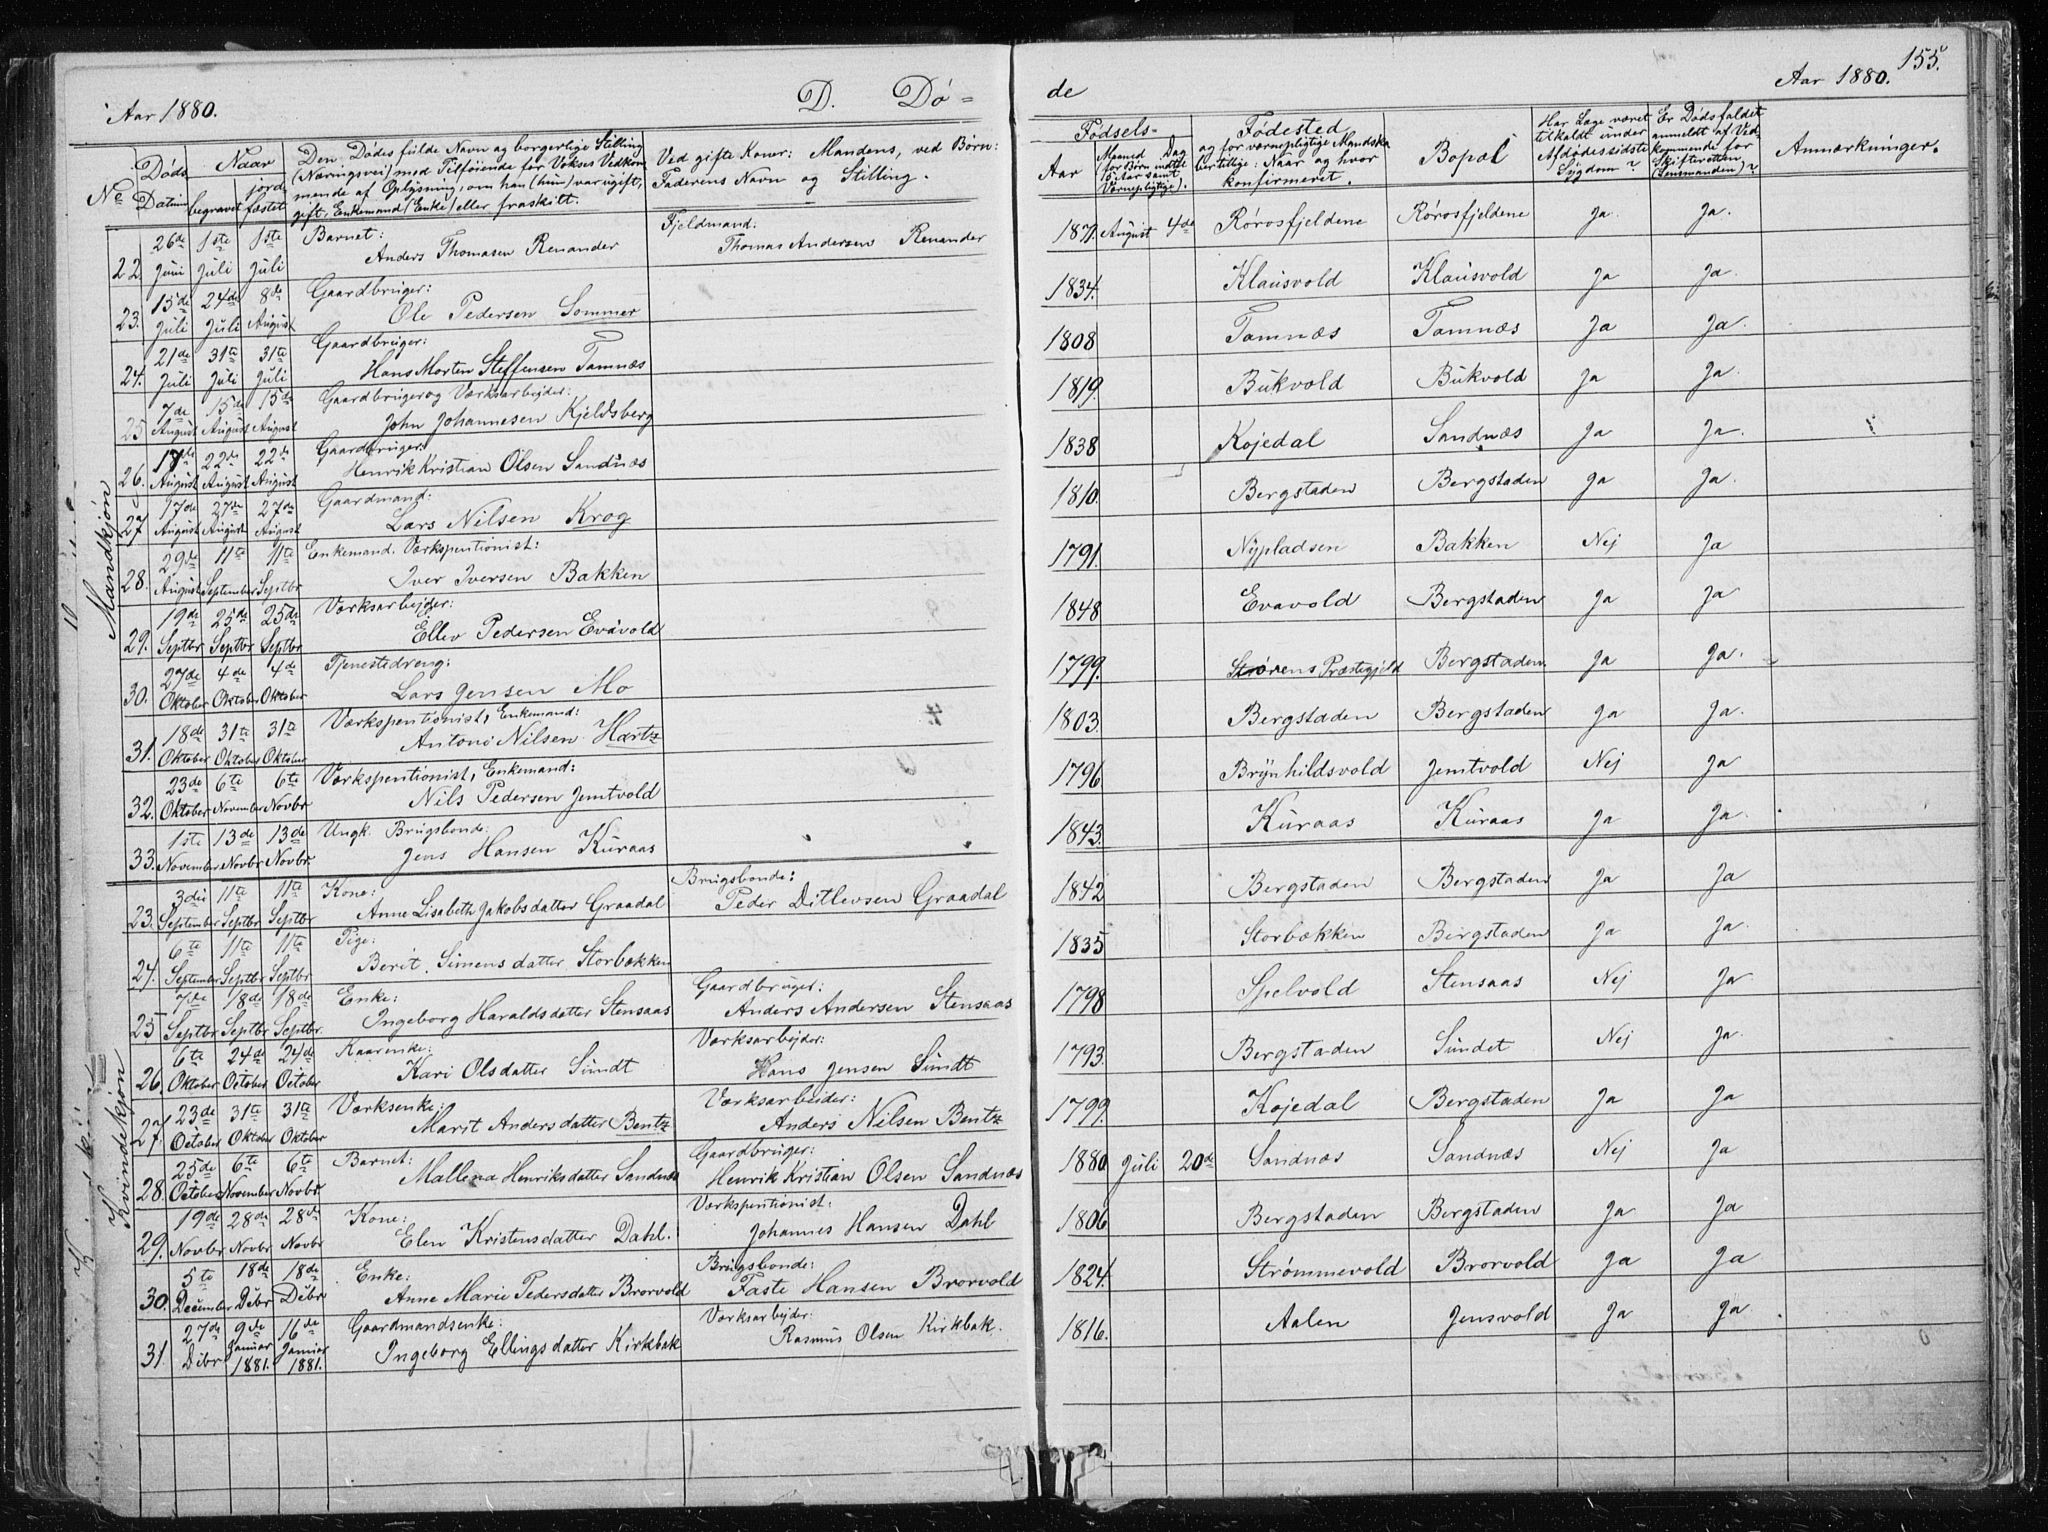 Aar 1880. D. Dö= de Aar 1880. 155.
No Döds Datum Naar begravet jordfæstet
Den Dödes fulde Navn og borgerlige Stilling (Næringsvei) med Tilföiende for Voksnes Vedkommende af Oplysning, om han (hun) var ugift, gift, Enkemand (Enke) eller fraskilt.
Ved gifte Koner: Mandens, ved Börn: Faderens Navn og Stilling.
Födsels- Aar Maaned Dag (for Börn indtil 15 Aar samt Værnepligtige).
Födested og for værnepligtige Mandskaber tillige: Naar og hvor konfirmeret.
Bopæl
Har Læge været tilkaldt under Afdødes sidste Sygdom?
Er Dödsfaldet anmeldt af Vedkommende for Skifteretten (Lensmanden)?
Anmærkninger.
Mandkjøn
22. 26de Juni 1ste Juli 1ste Juli Barnet: Anders Thomasen Renander Fjeldmand: Thomas Andersen Renander 1871. August 4de Rørosfjeldene Rørosfjeldene Ja. Ja.
23. 15de Juli 24de Juli 8de August Gaardbruger: Ole Pedersen Sommer 1834. Klausvold Klausvold Ja Ja.
24. 21de Juli 31te Juli 31te Juli Gaardbruger: Hans Morten Steffensen Tamnæs 1808 Tamnæs Tamnæs Ja Ja.
25 7de August 15de August 15de August Gaardbruger og Værksarbejder: John Johannesen Kjeldsberg 1819. Bukvold Bukvold Ja Ja.
26. 17de August 22de August 22de August Gaardbruger: Henrik Kristian Olsen Sandnæs 1838 Kojedal Sandnæs Ja Ja.
27 17de August 27de August 27de August Gaardmand: Lars Nilsen Krog 1810. Bergstaden Bergstaden Ja Ja.
28. 29de August 11te September 11te Septbr Enkemand. Værkspentionist: Iver Iversen Bakken 1791. Nypladsen Bakken Nej Ja
29. 19de Septbr 25de Septbr 25de Septbr Værksarbejder: Ellev Pedersen Evavold 1848 Evavold Bergstaden Ja Ja
30. 27de Oktober 4de Oktober 4de Oktober Tjenestedreng: Lars Jensen Mo 1799. Størens Præstegjeld Bergstaden. Ja Ja.
31. 18de Oktober 31te Oktober 31te Oktober Værkspentionist, Enkemand: Antoni Nilsen Hartz 1803. Bergstaden Bergstaden Ja Ja.
32. 23de Oktober 6te November 6te Novbr Værkspentionist, Enkemand: Nils Pedersen Jemtvold 1796 Brynhildsvold Jemtvold Nej Ja
33. 1ste November 13de Novbr 13de Novbr. Ungk. Brugsbonde: Jens Hansen Kuraas 1843. Kuraas Kuraas Ja Ja.
Kvindekjøn
23. 3die September 11te Septbr 11te Septbr Kone: Anne Lisabeth Jakobsdatter Graadal Brugsbonde: Peder Ditlevsen Graadal 1842 Bergstaden Bergstaden Ja Ja
24. 6te September 11te Septbr 11te Septbr Pige: Berit Simensdatter Storbækken 1835 Storbækken Bergstaden Ja Ja.
25 7de Septbr 18de Septbr 18de Septbr. Enke: Ingeborg Haraldsdatter Stensaas Gaardbruger: Anders Andersen Stensaas 1798 Spelvold Stensaas Nej Ja
26. 6te Oktober 24de October 24de October Kaarenke: Kari Olsdatter Sundt Værksarbejder: Hans Jensen Sundt 1793. Bergstaden Sundet Nej Ja.
27. 23de October 31te Oktober 31te Oktober Værksenke: Marit Andersdatter Bentz Værksarbejder: Anders Nilsen Bentz 1799. Kojedal Bergstaden Ja Ja
28. 25de October 6te November 6te Novbr. Barnet: Mallena Henriksdatter Sandnæs Gaardbruger: Henrik Kristian Olsen Sandnæs 1880 Juli 20de Sandnæs Sandnæs Nej Ja
29. 19de Novbr 28de Novbr 28de Novbr Kone: Elen Kristensdatter Dahl. Værkspentionist: Johannes Hansen Dahl 1806 Bergstaden Bergstaden Ja Ja
30. 5te December 18de Dcbr 18de Dcbr Enke: Anne Marie Pedersdatter Brorvold Brugsbonde: Faste Hansen Brorvold 1824. Strømmevold Brorvold Ja Ja
31. 27de Dcbr 9de Januar 1881. 16de Januar 1881. Gaardmandsenke: Ingeborg Ellingsdatter Kirkbak Værksarbejder: Rasmus Olsen Kirkbak. 1816. Aalen Jensvold Ja Ja.